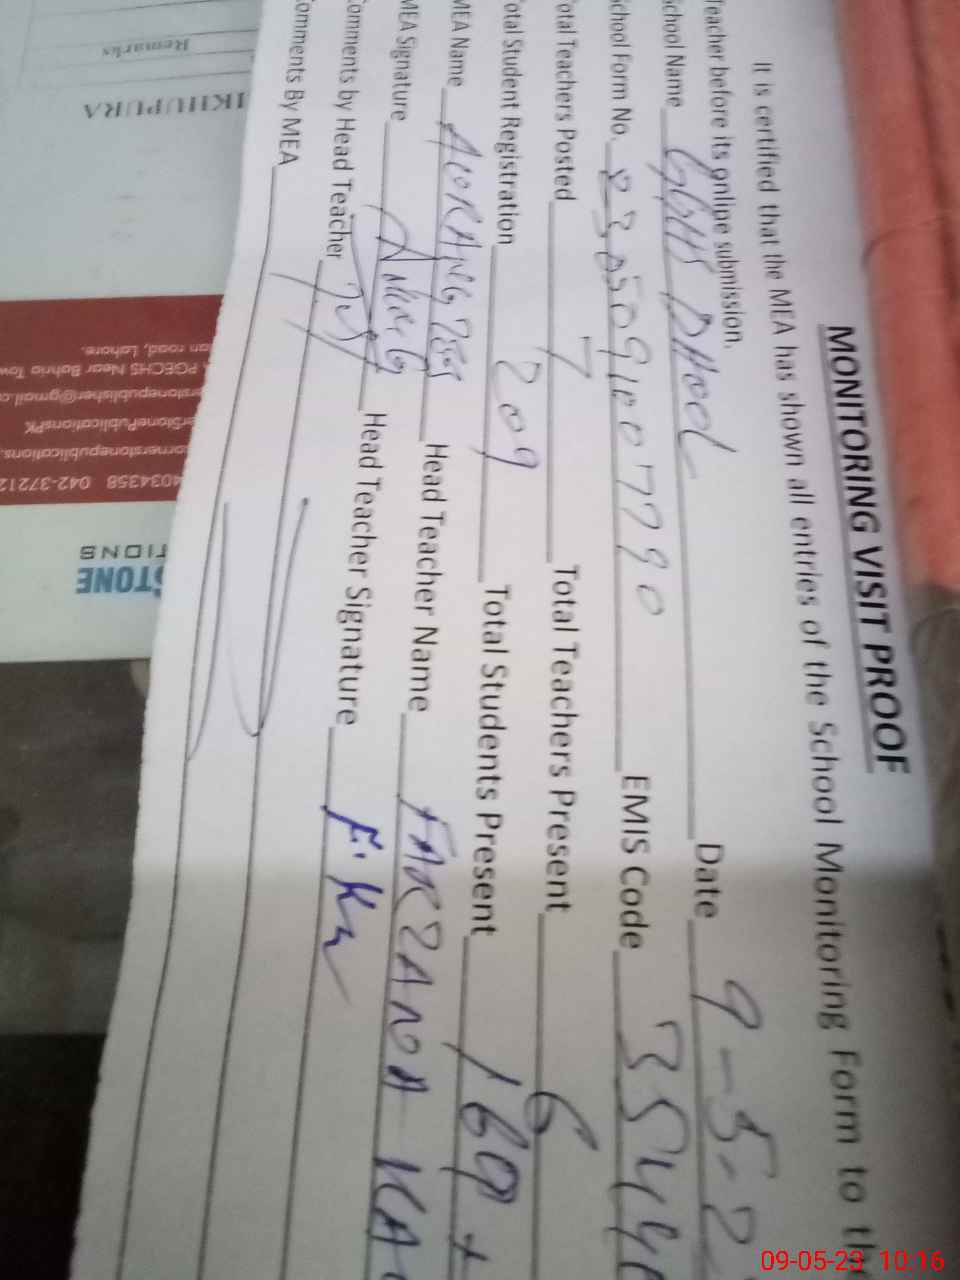 MONITORING VISIT PROOF
It is certified that the MEA has shown all entries of the School Monitoring Form to the
Teacher before its online submission.
School Name GGHS DHool Date 9-5-2
School Form No. EMIS Code 354
Total Teachers Posted 7 Total Teachers Present 6
Total Student Registration 209 Total Students Present 169 +
MEA Name AURANGZEB Head Teacher Name FARZANA KA
MEA Signature Head Teacher Signature F.Ku
Comments by Head Teacher
Comments By MEA
Remarks
IKHUPURA
an road, Lahore.
PGECHS Near Bahria Tow
erstonepublisher@gmail.c
erStonePublicationsPK
ornerstonepublications.
4034358 042-37212
TIONS
STONE
09-05-23 10:16